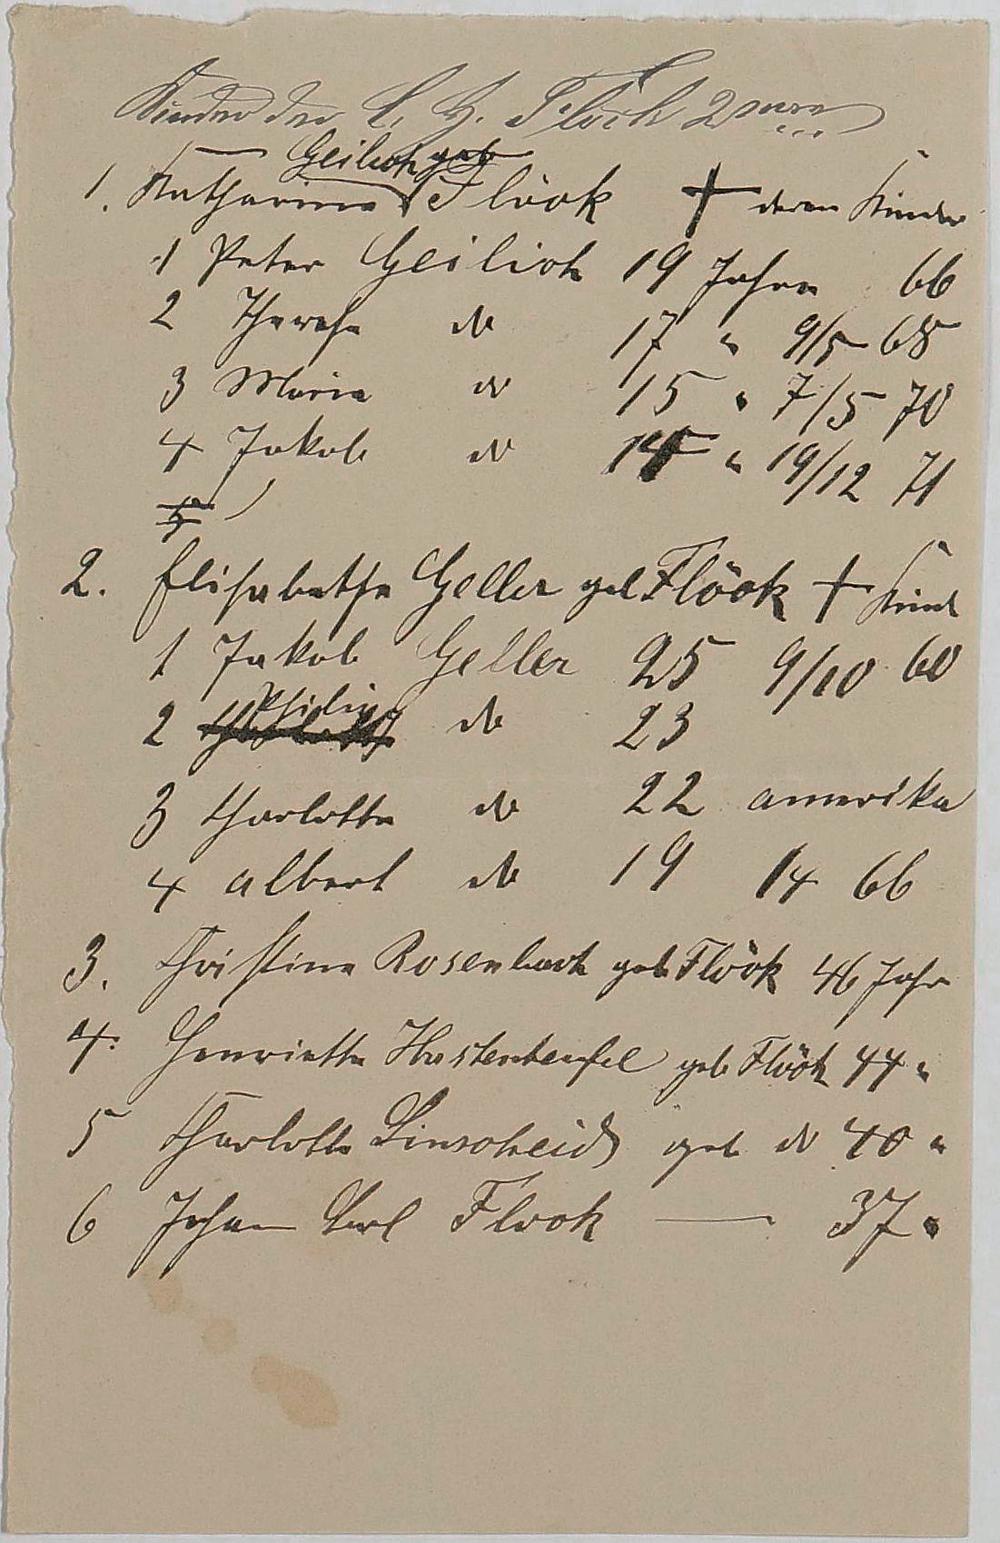 Kinder der C. H. Flöck 2
Geilich geb
1. Katharina Flöck † deren Kinder
1 Peter Geilich 19 Jahre 66
2 Therese do 17 " 9/5 68
3 Maria do 15 " 7/5 70
4 Jakob do 14 " 19/12 71
5
2. Elisabetha Geller geb Flöck † Kind
1 Jakob Geller 25 9/10 60
Philip
2 do 23
3 Charlotte do 22 amerika
4 Albert do 19 14 66
3. Christine Rosenbach geb Flöck 46 Jahr
4. Henriette geb Flöck 44 "
5 Charlotte Linscheid geb do 40 "
6 Johann Carl Flöck — 37 "